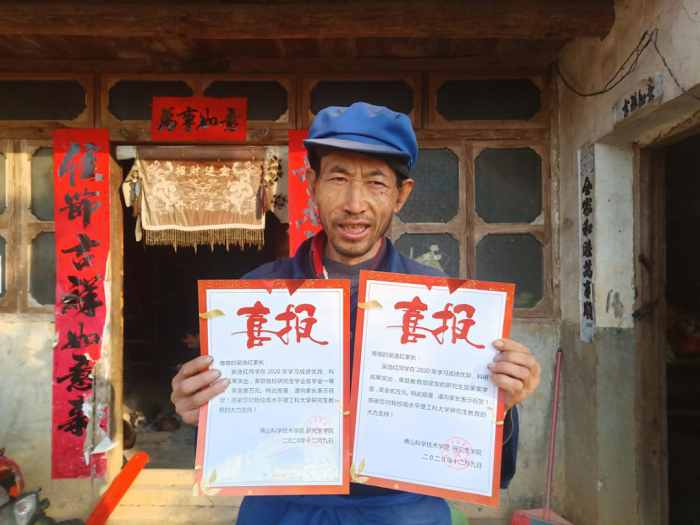 萬事如意
佳節吉祥如意事
合家和睦萬事順
喜报
尊敬的吴选红家长：
吴选红同学在 2020 年学习成绩优异，科研
成果突出，荣获我校研究生学业奖学金一等
奖金壹万元。特此报喜，谨向家长表示祝
贺！感谢您对我校高水平理工科大学研究生教育
的大力支持！
佛山科学技术学院 研究生学院
二〇二〇年十二月九日
喜报
尊敬的吴选红家长：
吴选红同学在 2020 年学习成绩优异，科研
成果突出，荣获教育部颁发的研究生国家奖学
奖金贰万元。特此报喜，谨向家长表示祝贺！
感谢您对我校高水平理工科大学研究生教育的
大力支持！
佛山科学技术学院 研究生学院
二〇二〇年十二月九日